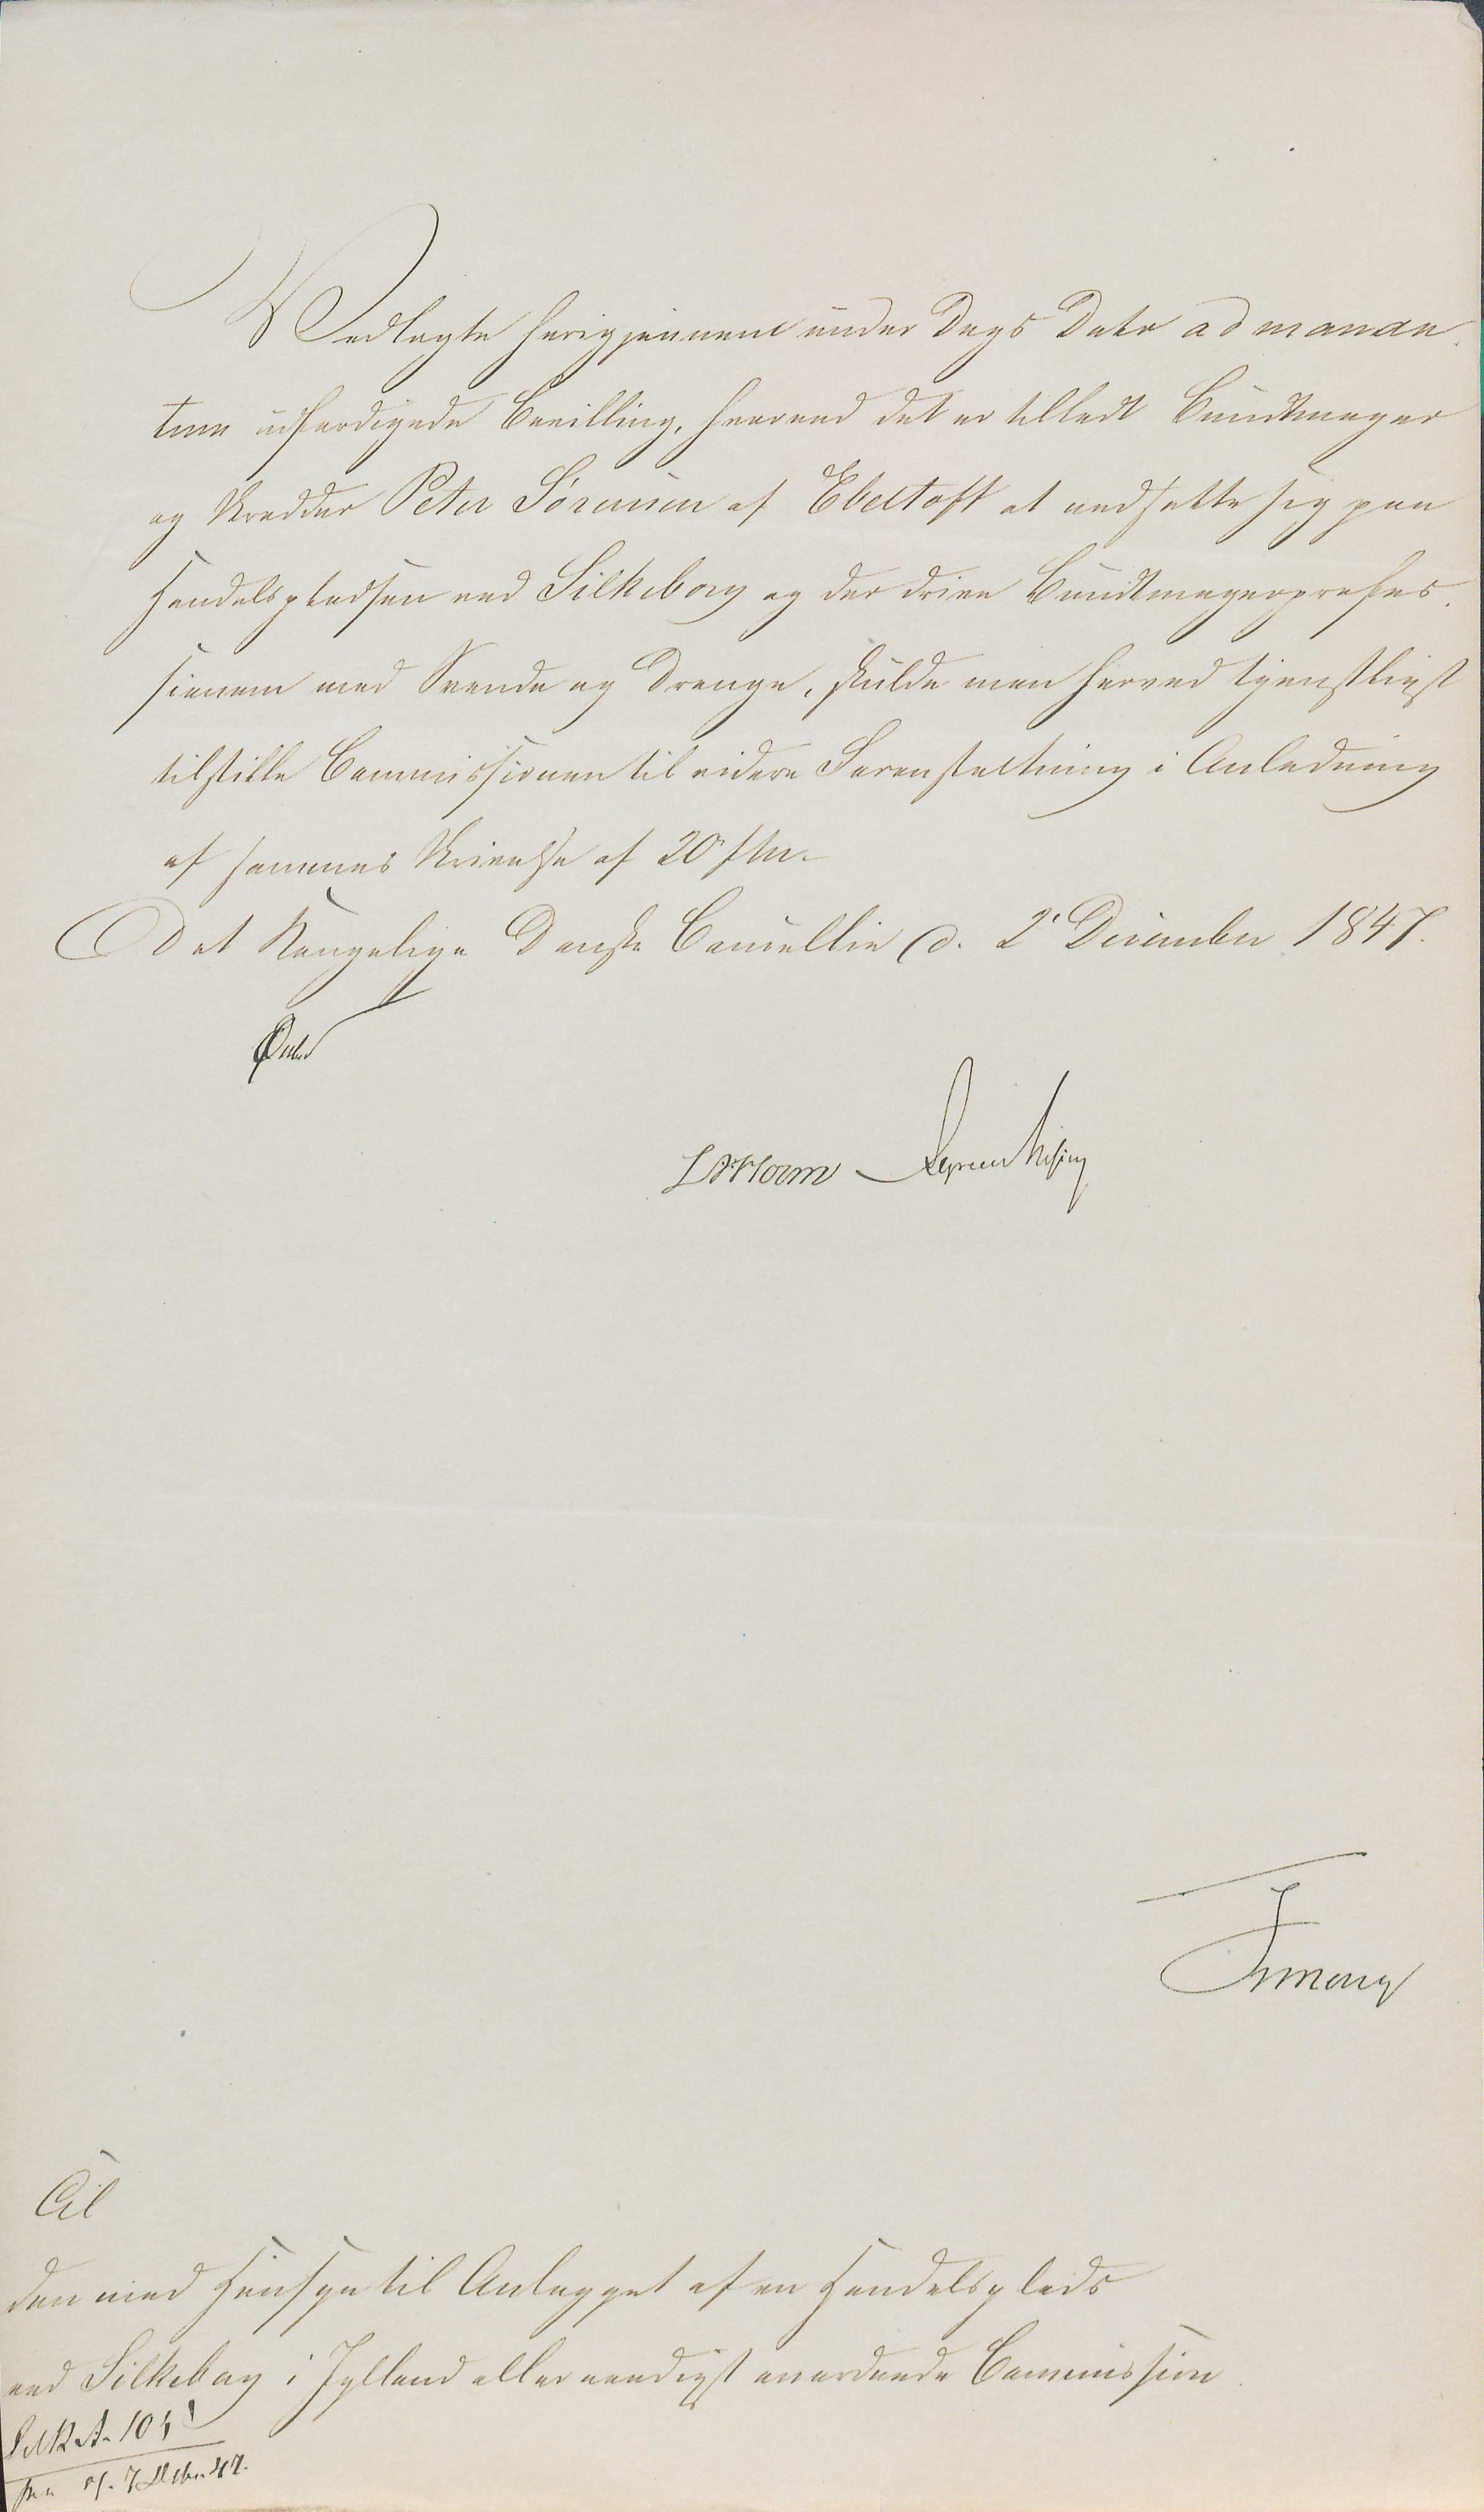 Vedlagte herigjennem under Dags Dato ad manda-
tum udfærdigede Bevilling, hvorved det er tilladt Bundtmager
og Skrædder Peter Sørensen af Ebeltoft at nedsætte sig paa
Handelspladsen ved Silkeborg og der drive Bundtmagerprofes-
sionen med Svende og Drenge, skulde man herved tjenstligst
tilstille Commissionen til videre Foranstaltning i Anledning
af sammes Skrivelse af 20 f. M.
Det Kongelige Danske Cancellie d. 2' December 1847.
Ørsted
Til
den med Hensyn til Anlægget af en Handelsplads
ved Silkeborg i Jylland allernaadigst anordnede Commission